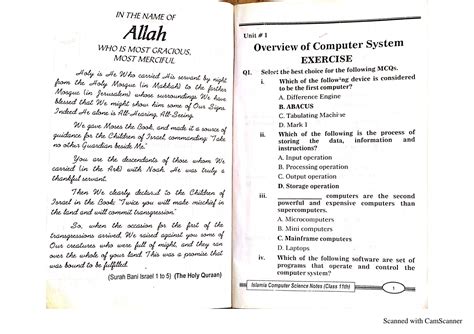 IN THE NAME OF
Allah
WHO IS MOST GRACIOUS,
MOST MERCIFUL
Holy is He Who carried His servant by night
from the Holy Mosque (in Makkah) to the farther
Mosque (in Jerusalem) whose surroundings We have
blessed that We might show him some of Our Signs.
Indeed He alone is All-Hearing, All-Seeing.
We gave Moses the Book, and made it a source of
guidance for the Children of Israel, commanding: "Take
no other Guardian beside Me."
You are the descendants of those whom We
carried (in the Ark) with Noah. He was truly a
thankful servant.
Then We clearly declared to the Children of
Israel in the Book: "Twice you will make mischief in
the land and will commit transgression."
So, when the occasion for the first of the
transgressions arrived, We raised against you some of
Our creatures who were full of might, and they ran
over the whole of your land. This was a promise that
was bound to be fulfilled.
(Surah Bani Israel 1 to 5) (The Holy Quraan)
Unit # 1
Overview of Computer System
EXERCISE
Q1. Select the best choice for the following MCQs.
i. Which of the following device is considered
to be the first computer?
A. Difference Engine
B. ABACUS
C. Tabulating Machine
D. Mark I
ii. Which of the following is the process of
storing the data, information and
instructions?
A. Input operation
B. Processing
C. Output operation
D. Storage operation
iii. computers are the second
powerful and expensive computers than
supercomputers.
A. Microcomputers
B. Mini computers
C. Mainframe computers
D. Laptops
iv. Which of the following software are set of
programs that operate and control the
computer system?
Islamia Computer Science Notes (Class 11th) 1
Scanned with CamScanner